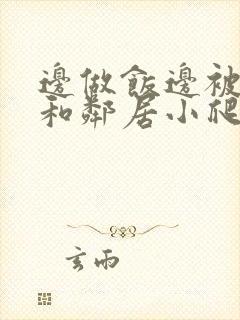 邊做飯邊被
和鄰居小爬
玄雨